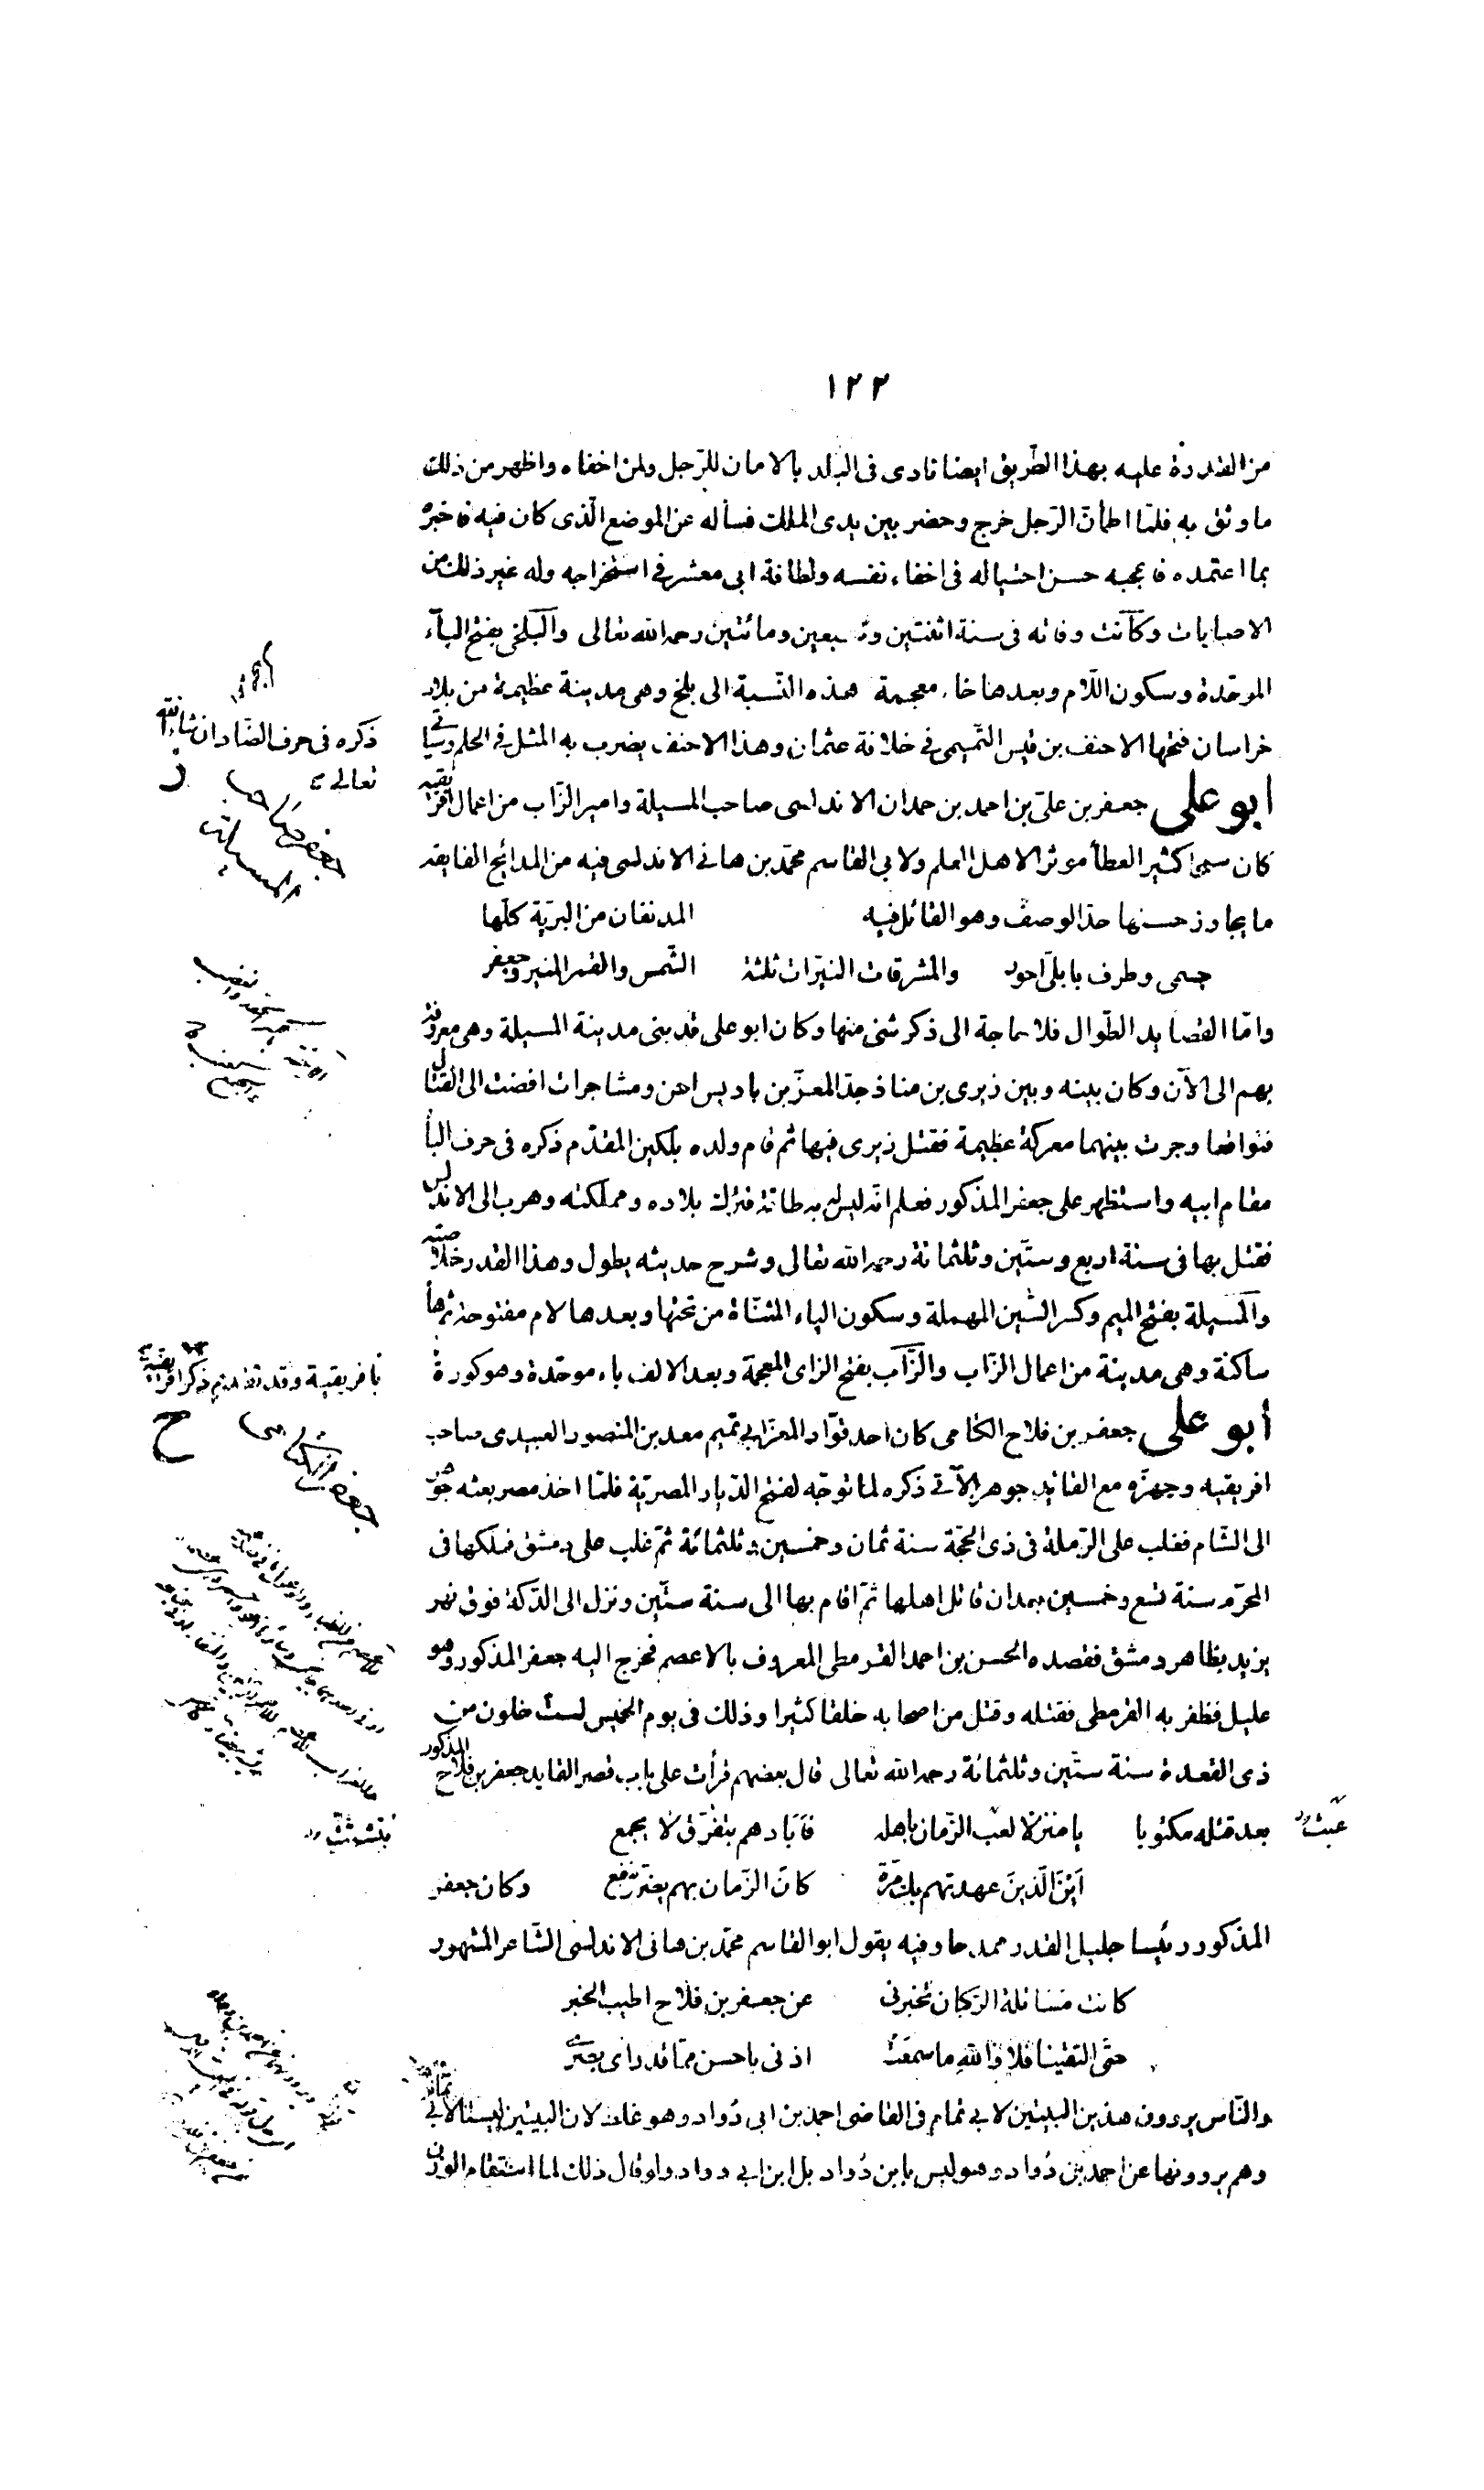 ١٢٢
من القدرة عليه بهذا الطّريق ايضا نادى فى البلد بالامان للرّجل ولمن اخفاه واظهر من ذلك
ما وثق به فلمّا اطمأنّ الرّجل خرج وحضر بين يدى الملك فسأله عن الموضع الّذى كان فيه فاخبره
بما اعتمده فاعجبه حسن احتياله فى اخفاء نفسه ولطافة ابى معشر فى استخراجه وله غير ذلك من
الاصابات وكانت وفاته فى سنة اثنتين وسبعين ومائتين رحمه الله تعالى والبلخى بفتح الباء
الموحّدة وسكون اللّام وبعدها خاء معجمة هذه النّسبة الى بلخ وهى مدينة عظيمة من بلاد
خراسان فتحها الاحنف بن قيس التّميمى فى خلافة عثمان وهذا الاحنف يضرب به المثل فى الحلم وسيأتى
ذكره فى حرف الضّاد ان شاء الله
تعالى
ابو على جعفر بن علىّ بن احمد بن حمدان الاندلسى صاحب المسيلة وامير الزّاب من اعمال افريقيه
جعفر صاحب
المسيلة
كان سمحا كثير العطأ موثرا لاهل العلم ولابى القاسم محمّد بن هانى الاندلسى فيه من المدائح الفايقه
ما يجاوز حسنها حدّ الوصف وهو القائل فيه المدنفان من البريّة كلّها
جسمى وطرف بابلىّ احور والمشرقات النيّرات ثلثة الشّمس والقمر المنير وجعفر
وامّا القصايد الطّوال فلا حاجة الى ذكر شئ منها وكان ابو على قد بنى مدينة المسيلة وهى معروفة
بهم الى الآن وكان بينه وبين زيرى بن مناد جدّ المعزّ بن باديس احن ومشاجرات افضت الى القتال
فتواقعا وجرت بينهما معركة عظيمة فقتل زيرى فيها ثم قام ولده بلكين المقدّم ذكره فى حرف البأ
مقام ابيه واستظهر على جعفر المذكور فعلم انّه ليس له به طاقة فترك بلاده ومملكته وهرب الى الاندلس
فقتل بها فى سنة اربع وستّين وثلثمائة رحمه الله تعالى وشرح حديثه يطول وهذا القدر خلاصته
والمسيلة بفتح الميم وكسر السّين المهملة وسكون الياء المثنّاة من تحتها وبعدها لام مفتوحة ثم هأ
ساكنة وهى مدينة من اعمال الزّاب والزّاب بفتح الزاى المعجمة وبعد الالف باء موحّدة وهو كورة
بافريقية وقد تقدّم ذكر افريقية
أبو على جعفر بن فلاح الكتامى كان احد قوّاد المعزّ ابى تميم معد بن المنصور العبيدى صاحب
جعفر الكتامى
افريقيه وجهزّه مع القائد جوهر الآتى ذكره لما توجّه لفتح الدّيار المصريّة فلمّا اخذ مصر بعثه جوهر
الى الشّام فغلب على الرّملة فى ذى الحجّة سنة ثمان وخمسين وثلثمائة ثمّ غلب على دمشق فملكها فى
المحرّم سنة تسع وخمسين بعد ان قاتل اهلها ثمّ اقام بها الى سنة ستّين ونزل الى الدّكة فوق نهر
يزيد بظاهر دمشق فقصده الحسن بن احمد القرمطى المعروف بالاعصم فخرج اليه جعفر المذكور وهو
عليل فظفر به القرمطى فقتله وقتل من اصحابه خلقا كثيرا وذلك فى يوم الخميس لست خلون من
ذى القعدة سنة ستّين وثلثمائة رحمه الله تعالى قال بعضهم قرأت على باب قصر القايد جعفر بن فلاح المذكور
بعد قتله مكتوبا يا منزلا لعب الزّمان باهله فاباد هم بتفرّق لا يجمع
عبث
اين الّذين عهدتهم بك مرّة كان الزّمان بهم يضرّ وينفع وكان جعفر
المذكور رئيسا جليل القدر ممدحا وفيه يقول ابو القاسم محمّد بن هانى الاندلسى الشّاعر المشهور
كانت مسائلة الرّكبان تخبرنى عن جعفر بن فلاح اطيب الخبر
حتّى التقينا فلا والله ما سمعت اذنى باحسن ممّا قد رأى بصرى
والنّاس يروون هذين البيتين لابى تمام فى القاضى احمد بن ابى دُواد وهو غلط لان البيتين ليستا لابى تمّام
وهم يروونها عن احمد بن دُواد وهو ليس بابن دُواد بل ابن ابى دواد ولو قال ذلك لما استقام الوزن